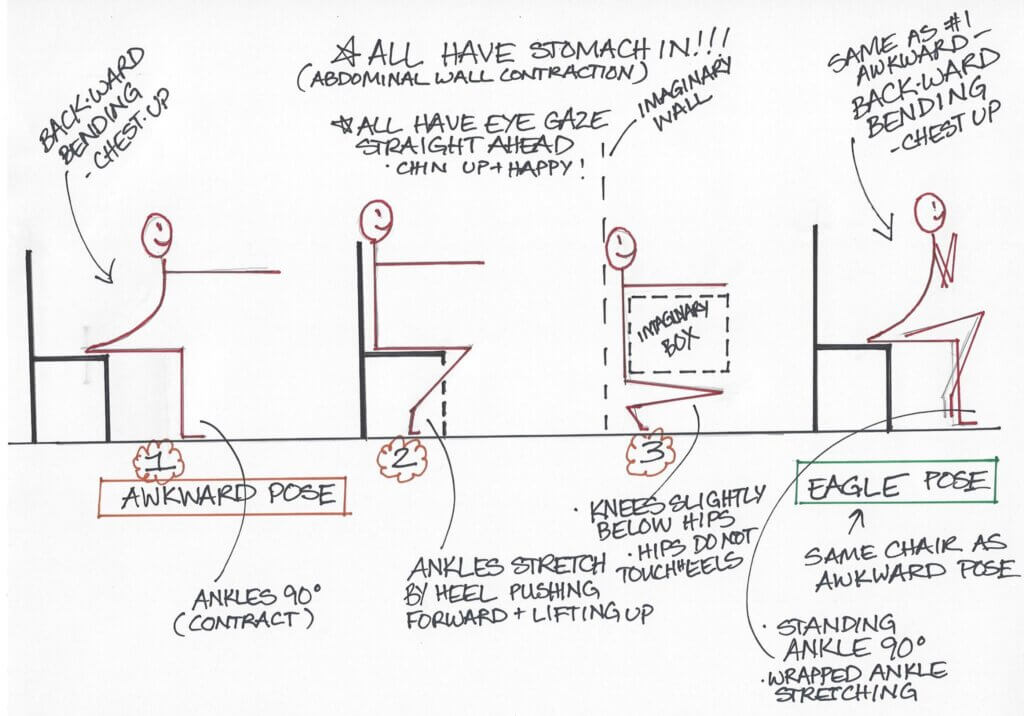 ☆ ALL HAVE STOMACH IN!!!
(ABDOMINAL WALL CONTRACTION)
☆ ALL HAVE EYE GAZE
STRAIGHT AHEAD
· CHIN UP + HAPPY!
BACK-WARD
BENDING
- CHEST-UP
IMAGINARY
WALL
SAME AS #1
AWKWARD -
BACK-WARD
BENDING
- CHEST UP
IMAGINARY
BOX
1
2
3
AWKWARD POSE
EAGLE POSE
ANKLES 90°
(CONTRACT)
ANKLES STRETCH
BY HEEL PUSHING
FORWARD + LIFTING UP
· KNEES SLIGHTLY
BELOW HIPS
· HIPS DO NOT
TOUCH HEELS
SAME CHAIR AS
AWKWARD POSE
· STANDING
ANKLE 90°
· WRAPPED ANKLE
STRETCHING